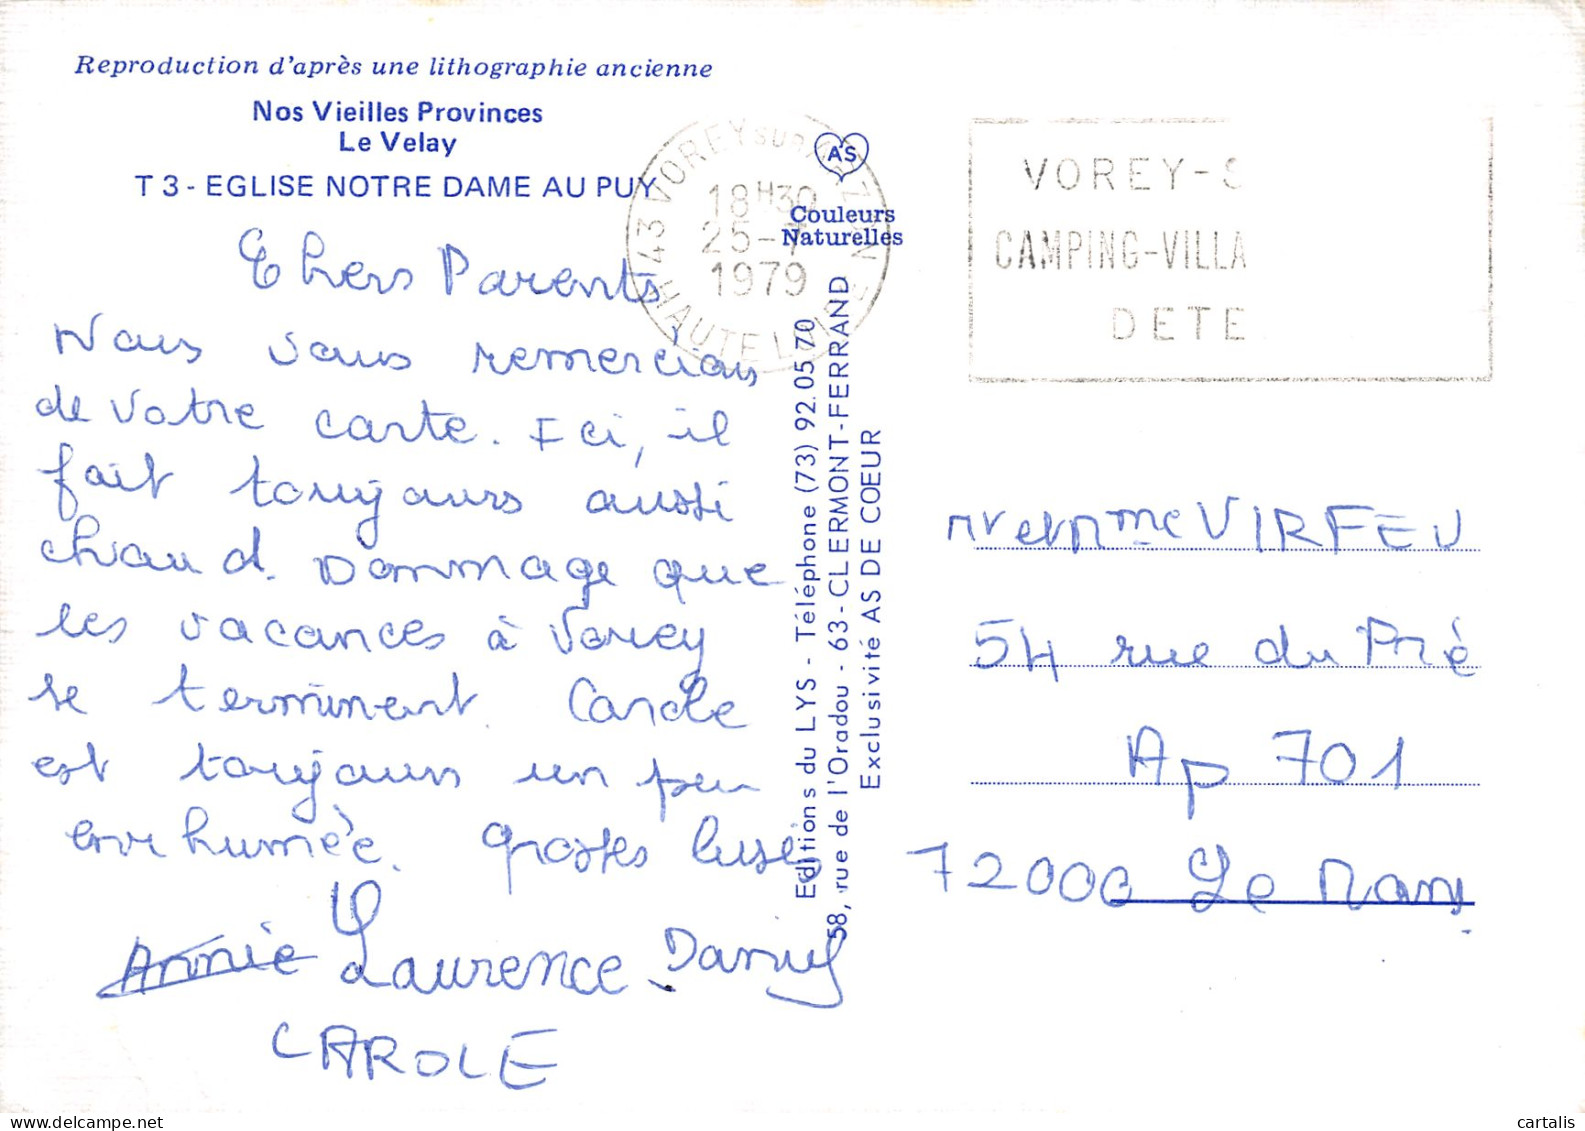 Reproduction d'après une lithographie ancienne
Nos Vieilles Provinces
Le Velay
T 3 - EGLISE NOTRE DAME AU PUY
Chers Parents
Nous vous remercions
de votre carte. Ici, il
fait toujours aussi
chaud. Dommage que
les vacances à Vorey
se terminent. Carole
est toujours un peu
enrhumée. grosses bises
Annie Laurence Daniel
CAROLE
43 VOREY SUR ARZON
18H30
25-7
1979
HAUTE LOIRE
AS
Couleurs
Naturelles
Editions du LYS - Téléphone (73) 92.05.70
58, rue de l'Oradou - 63 - CLERMONT-FERRAND
Exclusivité AS DE COEUR
VOREY-S
CAMPING-VILLA
DETE
Mr et Mme VIRFEU
54 rue du Pré
Ap 701
72000 Le Mans
cartalis